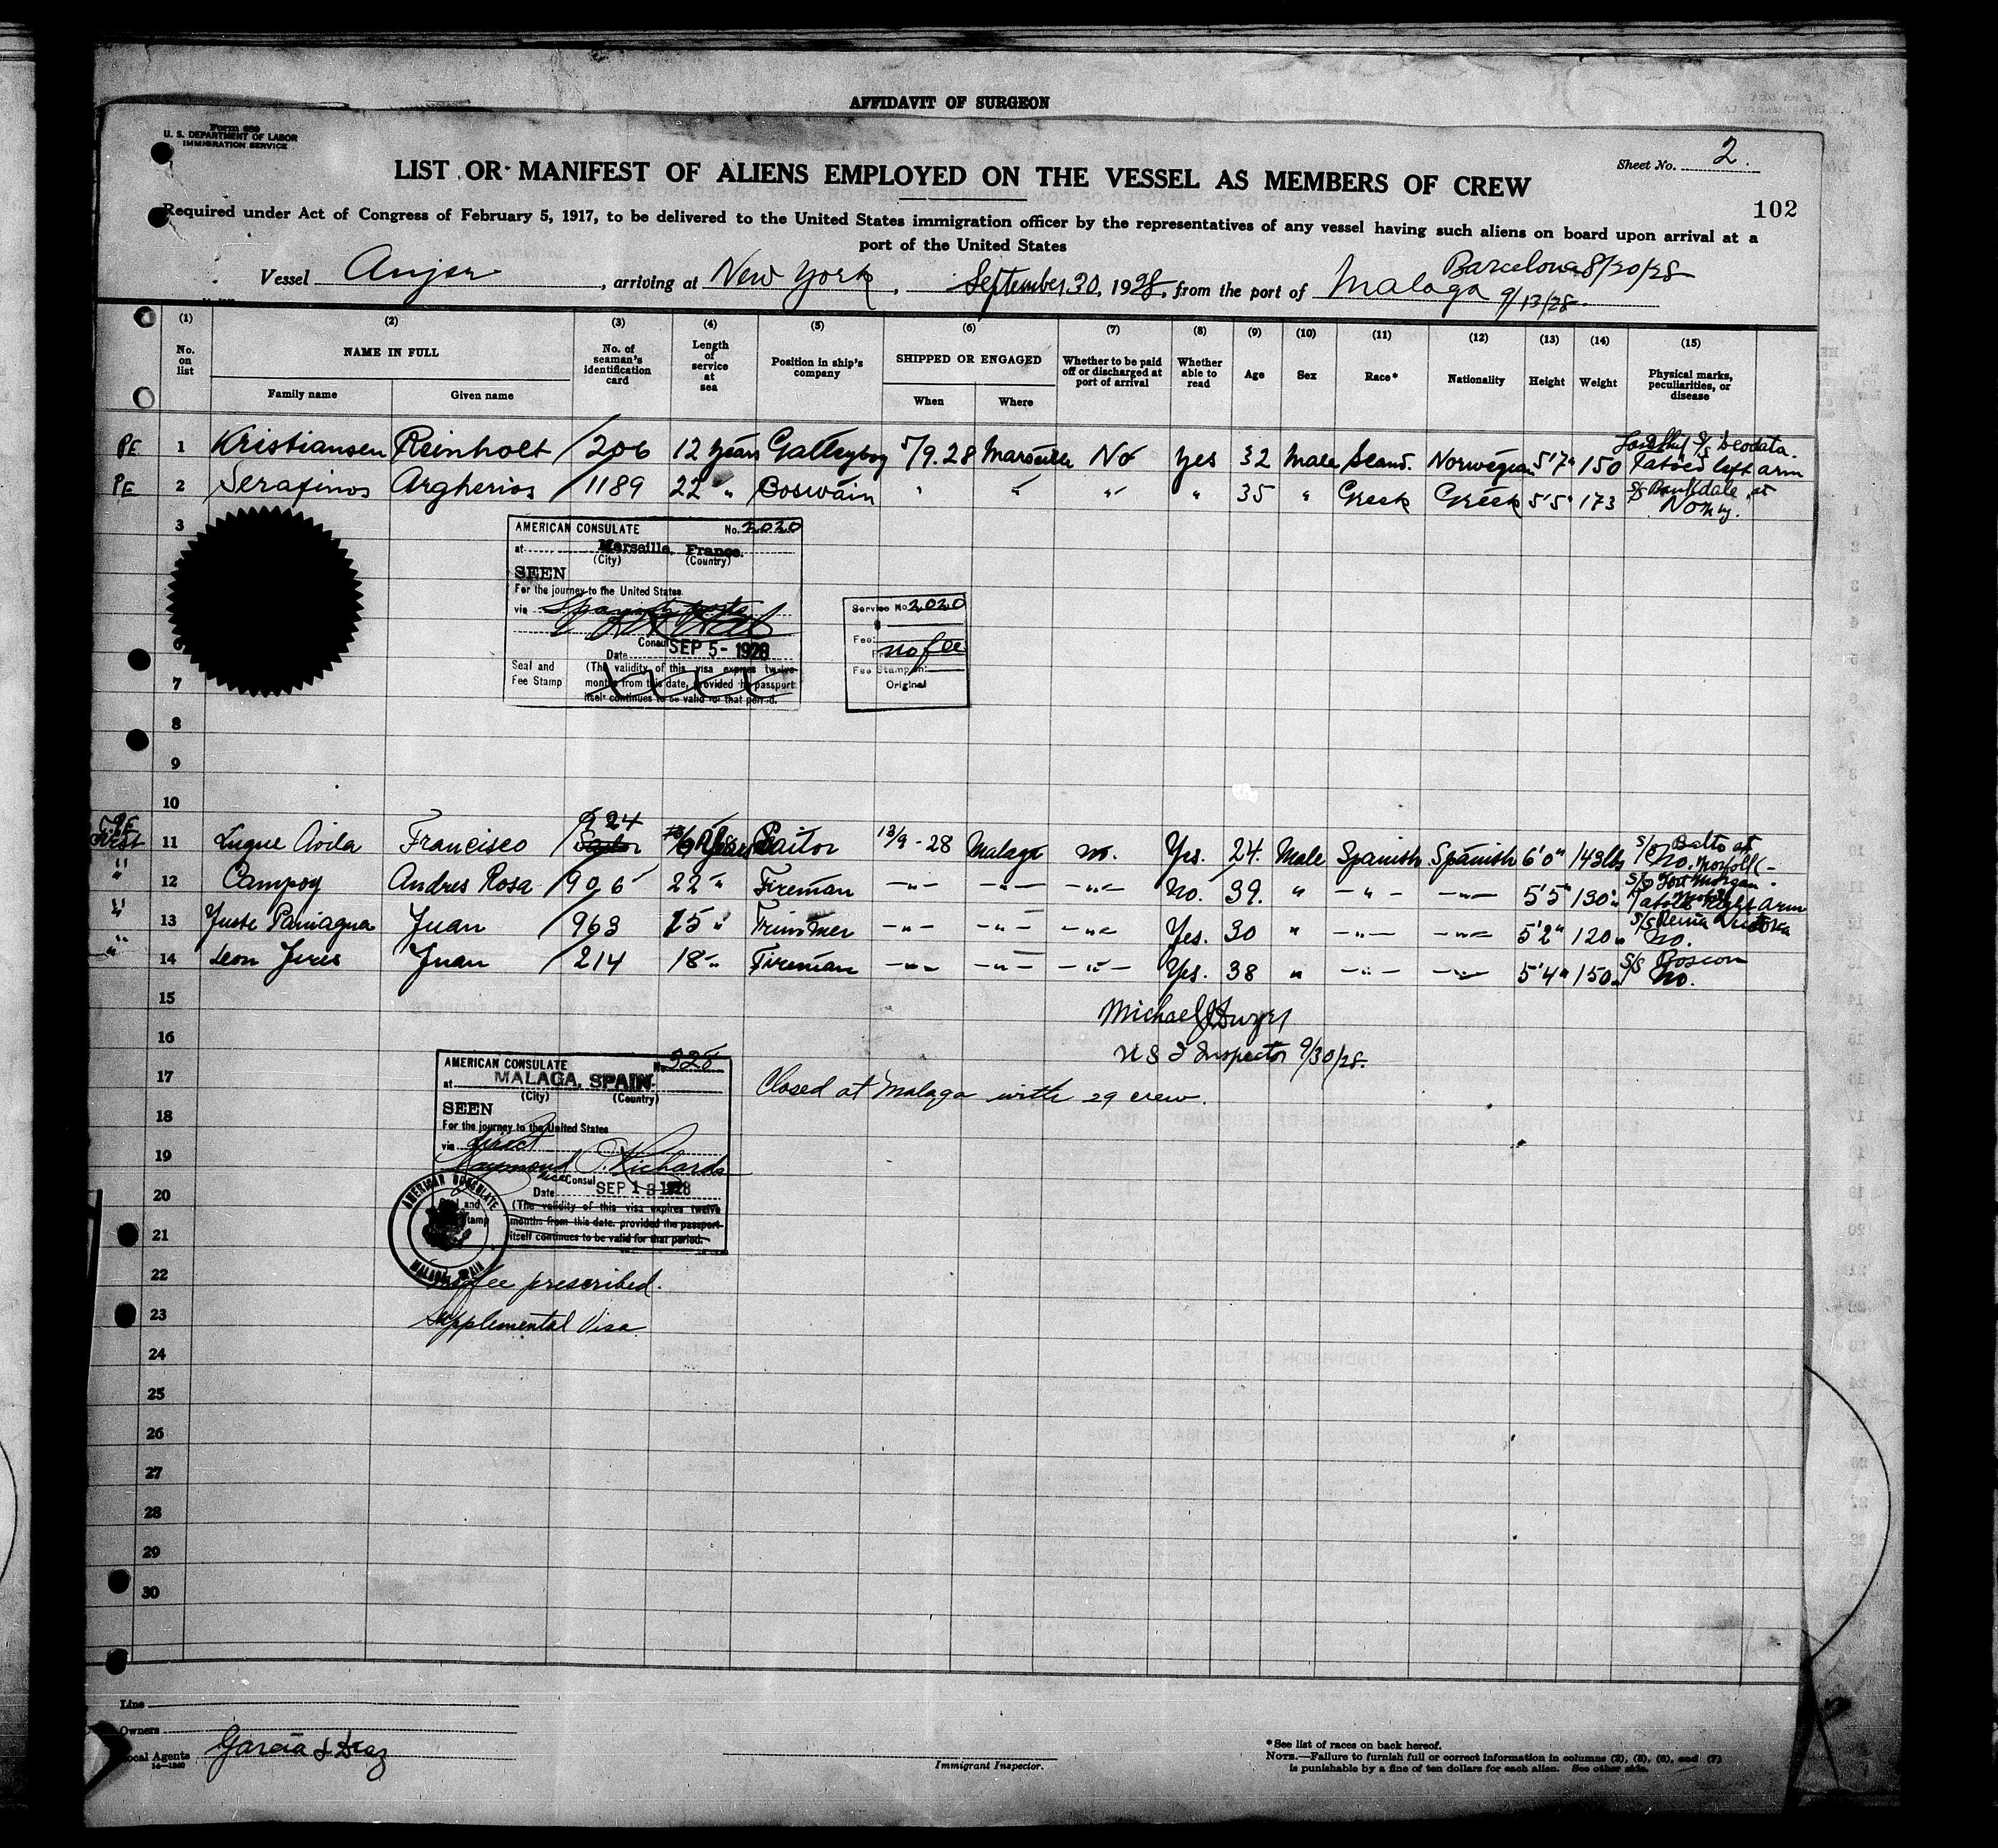 AFFIDAVIT OF SURGEON
Form 680
U. S. DEPARTMENT OF LABOR
IMMIGRATION SERVICE
Sheet No. 2.
LIST OR MANIFEST OF ALIENS EMPLOYED ON THE VESSEL AS MEMBERS OF CREW
102
Required under Act of Congress of February 5, 1917, to be delivered to the United States immigration officer by the representatives of any vessel having such aliens on board upon arrival at a
port of the United States
Barcelona 8/20/28
Vessel Anjer, arriving at New York, September 30, 1928, from the port of Malaga 9/13/28.
(1) (2) (3) (4) (5) (6) (7) (8) (9) (10) (11) (12) (13) (14) (15)
No. on list NAME IN FULL No. of seaman's identification card Length of service at sea Position in ship's company SHIPPED OR ENGAGED Whether to be paid off or discharged at port of arrival Whether able to read Age Sex Race* Nationality Height Weight Physical marks, peculiarities, or disease
Family name Given name When Where
PE 1 Kristiansen Reinholt 206 12 years Galleyboy 5/9.28 Marseille No yes 32 Male Scand. Norwegian 5'7" 150 Tatoed left arm
PE 2 Serafinos Argherios 1189 22 " Boswain " " " " 35 " Greek Greek 5'5" 173 No
3
AMERICAN CONSULATE No. 2020
at Marseille, France.
(City) (Country)
SEEN
For the journey to the United States
via Spanish ports
Consul
Date SEP 5 - 1928
Seal and Fee Stamp
(The validity of this visa expires twelve
months from this date, provided the passport
itself continues to be valid for that period.
Service No 2020
Fee: no fee
Fee Stamp on:
Original
7
8
9
10
924
First 11 Luque Avila Francisco Sailor years Sailor 13/9 - 28 Malaga no. Yes. 24. Male Spanish Spanish 6'0" 143lbs S/S Balto at Norfolk No.
" 12 Campoy Andres Rosa 906 22 " Fireman -"- -"- -"- No. 39. " -"- -"- 5'5" 130 " S/S Fort Morgan Right Arm
" 13 Yuste Paniagua Juan 963 15 " Trimmer -"- -"- -"- Yes. 30 " -"- -"- 5'2" 120 " S/S No.
" 14 Leon Juan 214 18 " Fireman -"- -"- -"- Yes. 38 " -"- -"- 5'4" 150 " S/S No.
15
Michael J Dwyer
16
U S I Inspector 9/30/28.
17
Closed at Malaga with 29 crew.
AMERICAN CONSULATE No. 328
at MALAGA, SPAIN.
(City) (Country)
SEEN
For the journey to the United States
via direct
Raymond O. Richards
Vice Consul
Date SEP 13 1928
(The validity of this visa expires twelve
months from this date, provided the passport
itself continues to be valid for that period.
AMERICAN CONSULATE
MALAGA, SPAIN
18
19
20
21
22
No fee prescribed.
23
Supplemental Visa
24
25
26
27
28
29
30
Line
Owners
Local Agents Garcia & Diaz
14—1240
Immigrant Inspector.
*See list of races on back hereof.
NOTE.—Failure to furnish full or correct information in columns (2), (5), (6), and (7)
is punishable by a fine of ten dollars for each alien. See other side.